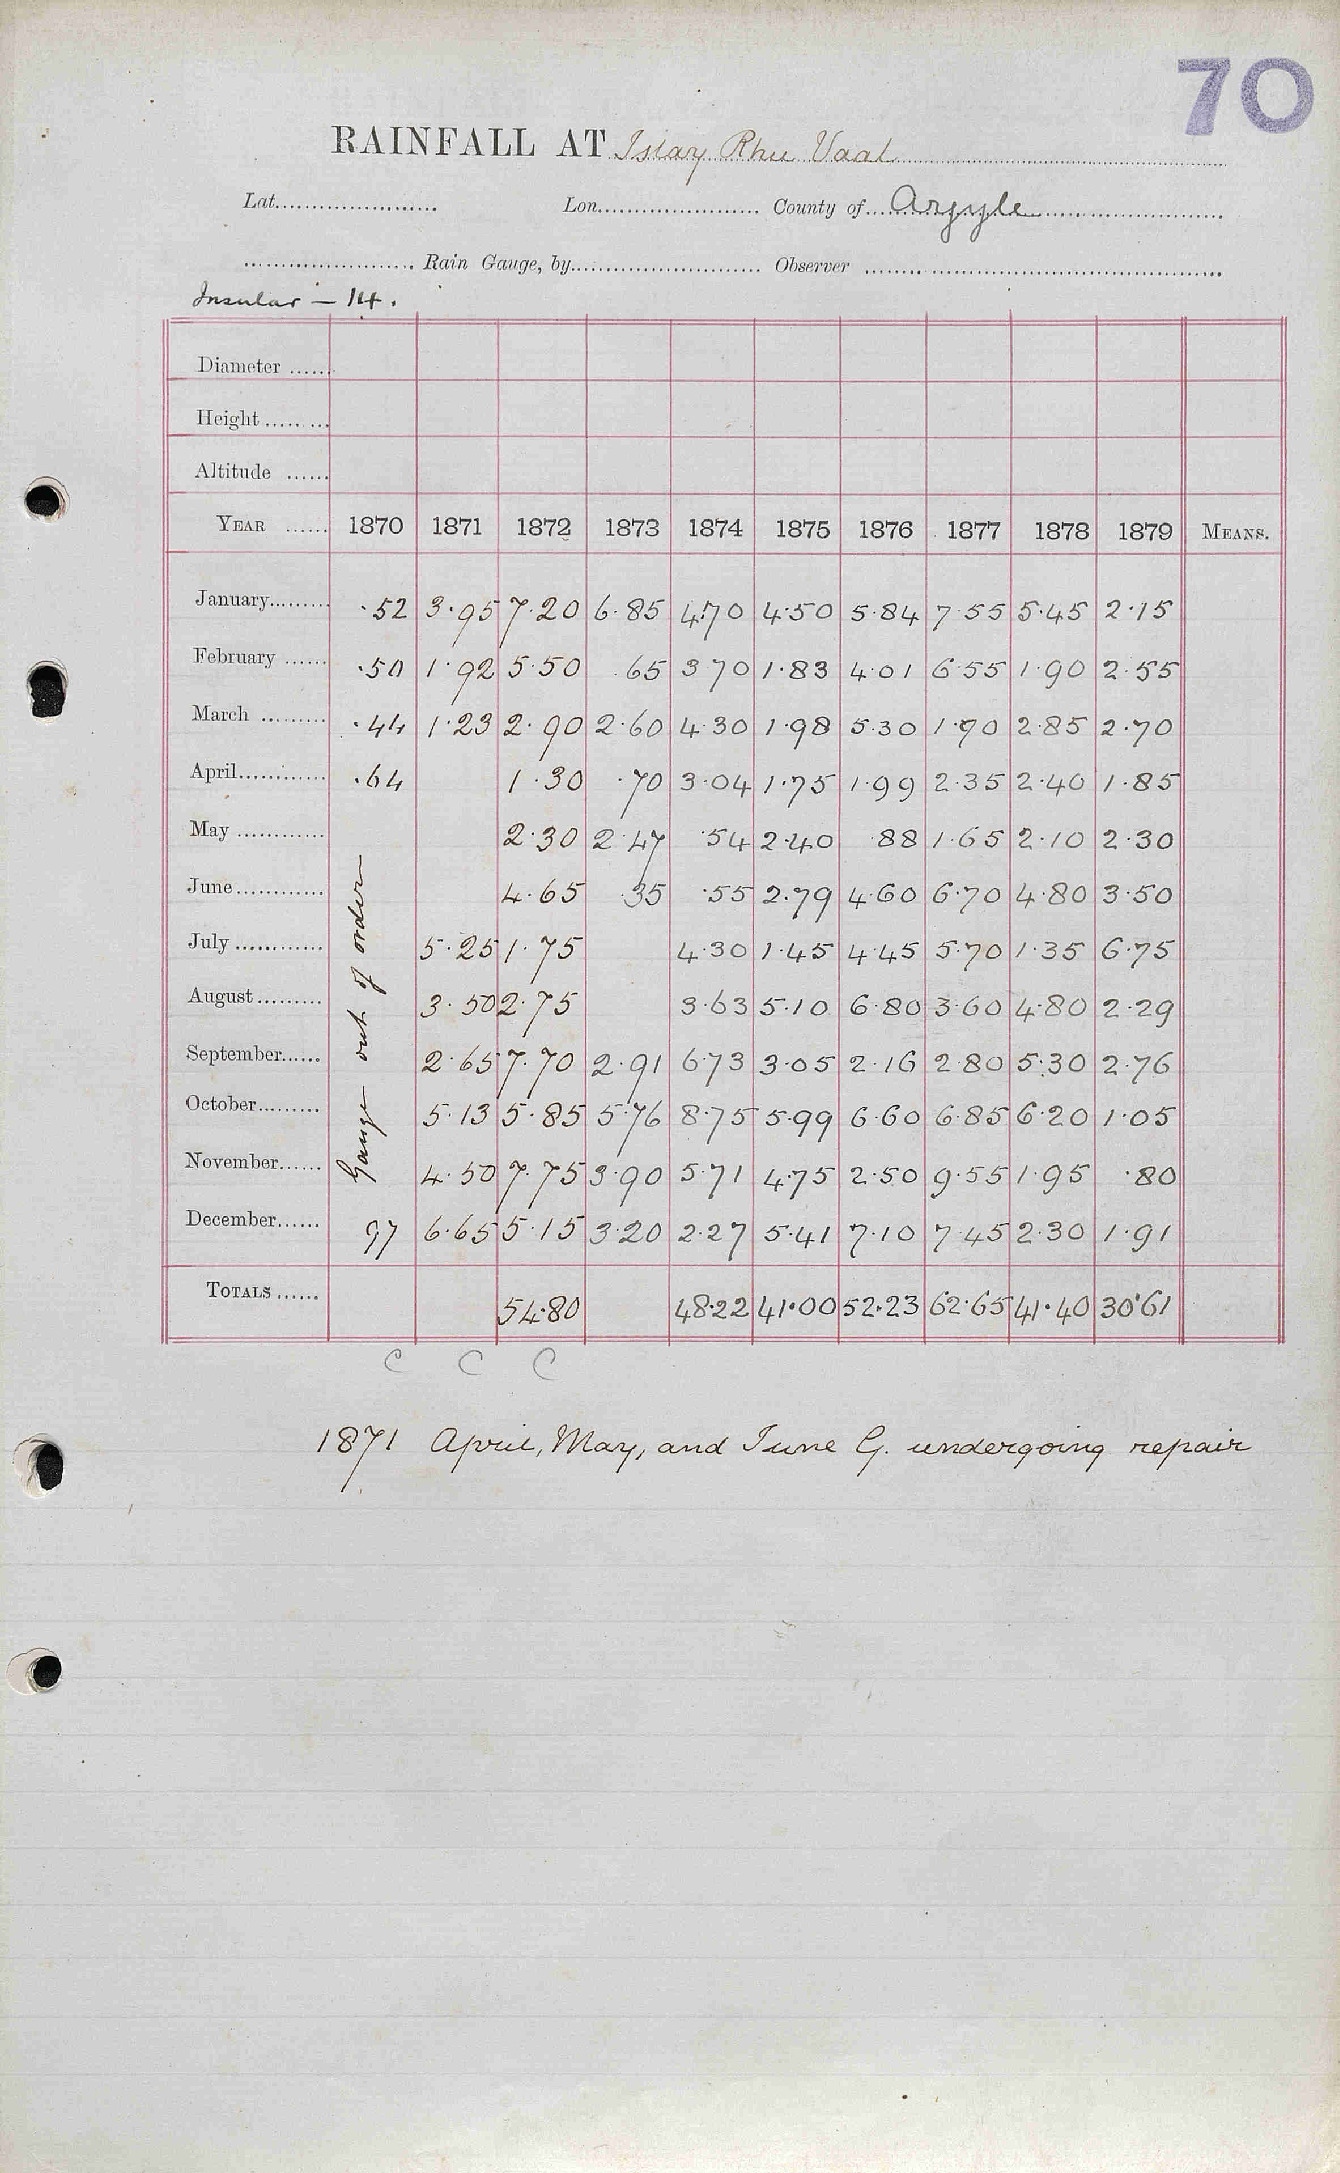 70
RAINFALL AT Islay Rhu Vaal
Lat. Lon. County of Argyle
Rain Gauge, by Observer
Insular – 14.
Diameter
Height
Altitude
YEAR 1870 1871 1872 1873 1874 1875 1876 1877 1878 1879 MEANS.
January ·52 3·95 7·20 6·85 4·70 4·50 5·84 7·55 5·45 2·15
February ·50 1·92 5·50 ·65 3·70 1·83 4·01 6·55 1·90 2·55
March ·44 1·23 2·90 2·60 4·30 1·98 5·30 1·90 2·85 2·70
April ·64 1·30 ·70 3·04 1·75 1·99 2·35 2·40 1·85
May 2·30 2·47 ·54 2·40 ·88 1·65 2·10 2·30
June 4·65 ·35 ·55 2·79 4·60 6·70 4·80 3·50
July 5·25 1·75 4·30 1·45 4·45 5·70 1·35 6·75
August 3·50 2·75 3·63 5·10 6·80 3·60 4·80 2·29
September 2·65 7·70 2·91 6·73 3·05 2·16 2·80 5·30 2·76
October 5·13 5·85 5·76 8·75 5·99 6·60 6·85 6·20 1·05
November 4·50 7·75 3·90 5·71 4·75 2·50 9·55 1·95 ·80
December 97 6·65 5·15 3·20 2·27 5·41 7·10 7·45 2·30 1·91
Gauge out of order
TOTALS 54·80 48·22 41·00 52·23 62·65 41·40 30·61
C C C
1871 April, May, and June G. undergoing repair